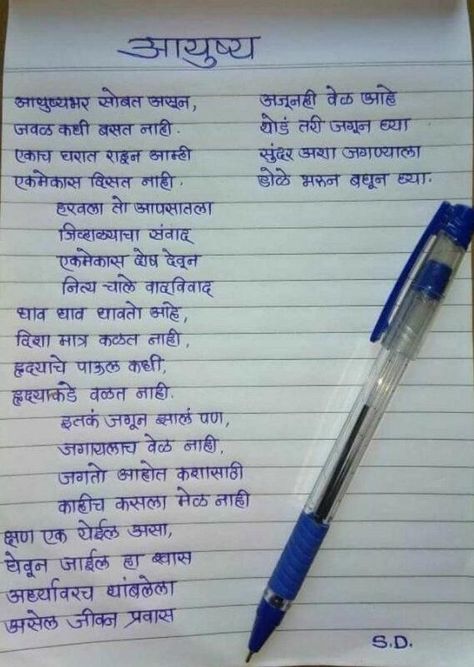 आयुष्य
आयुष्यभर सोबत असून,
जवळ कधी बसत नाही.
एकाच घरात राहून आम्ही
एकमेकास दिसत नाही.
हरवला तो आपसातला
जिव्हाळ्याचा संवाद
एकमेकास दोष देवून
नित्य चाले वादविवाद
धाव धाव धावतो आहे,
दिशा मात्र कळत नाही,
हृदयाचे पाऊल कधी,
हृदयाकडे वळत नाही.
इतकं जगून झालं पण,
जगायलाच वेळ नाही,
जगतो आहोत कशासाठी
काहीच कसला मेळ नाही
क्षण एक येईल असा,
घेवून जाईल हा श्वास
अर्ध्यावरच थांबलेला
असेल जीवन प्रवास
अजूनही वेळ आहे
थोडं तरी जगून घ्या
सुंदर अशा जगण्याला
डोळे भरून बघून घ्या.
S.D.